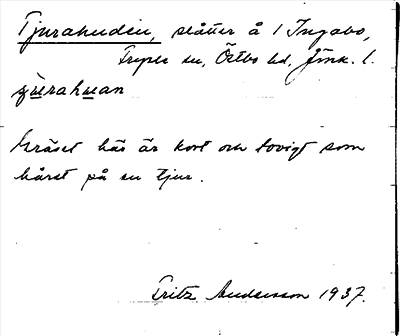 Tjurahuden, slåtter å 1 Ingabo,
Fryele sn, Östbo hd, Jönk. l.
çu̲rahu̲an
Gräset här är kort och tovigt som
håret på en tjur.
Fritz Andersson 1937.